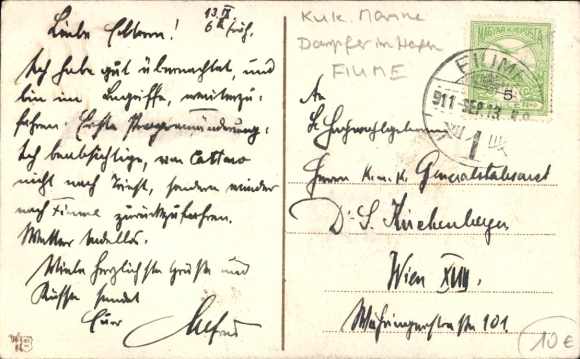 Liebe Eltern!
13. IX
6h früh.
Ich habe gut übernachtet, und
bin im Begriffe, weiterzu-
fahren. Erste Programmänderung:
Ich beabsichtige, von Cattaro
nicht nach Triest, sondern wieder
nach Fiume zurückzufahren.
Wetter tadellos.
Viele herzlichste Grüsse und
Küsse sendet
Euer Alfred
K.u.k. Marine
Dampfer im Hafen
FIUME
MAGYAR KIR. POSTA
5
FIUME
911 SEP. 13.
1
An
Sr Hochwohlgeboren
Herrn K.u.K. Generalstabsarzt
Dr. S. Kirchenberger
Wien XVIII,
Währingerstrasse 101
10€